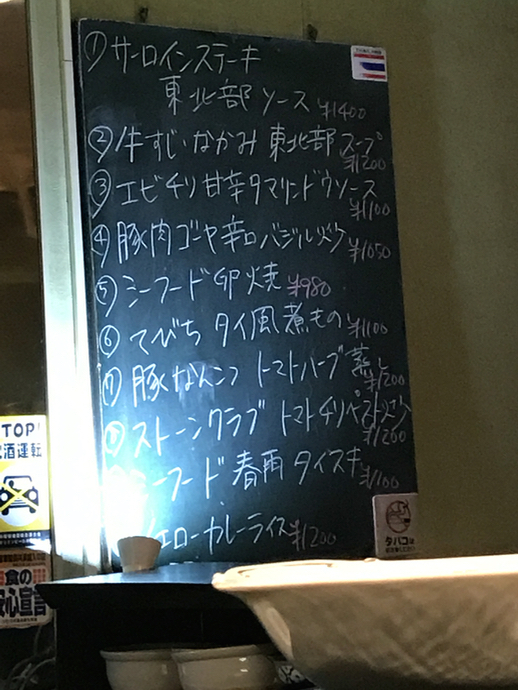 ① サーロインステーキ
東北部 ソース ¥1400
② 牛すじなかみ 東北部 スープ
¥1200
③ エビチリ 甘辛タマリンドウソース
¥1100
④ 豚肉ゴーヤ辛口バジル炒 ¥1050
⑤ シーフード卵焼 ¥980
⑥ てびち タイ風煮もの ¥1100
⑦ 豚なんこつ トマトハーブ蒸し
¥1200
⑧ ストーンクラブ トマトチリペースト炒
¥1200
シーフード春雨タイスキ ¥1100
イエローカレーライス ¥1200
TOP!
飲酒運転
食の
安心宣言
タバコは